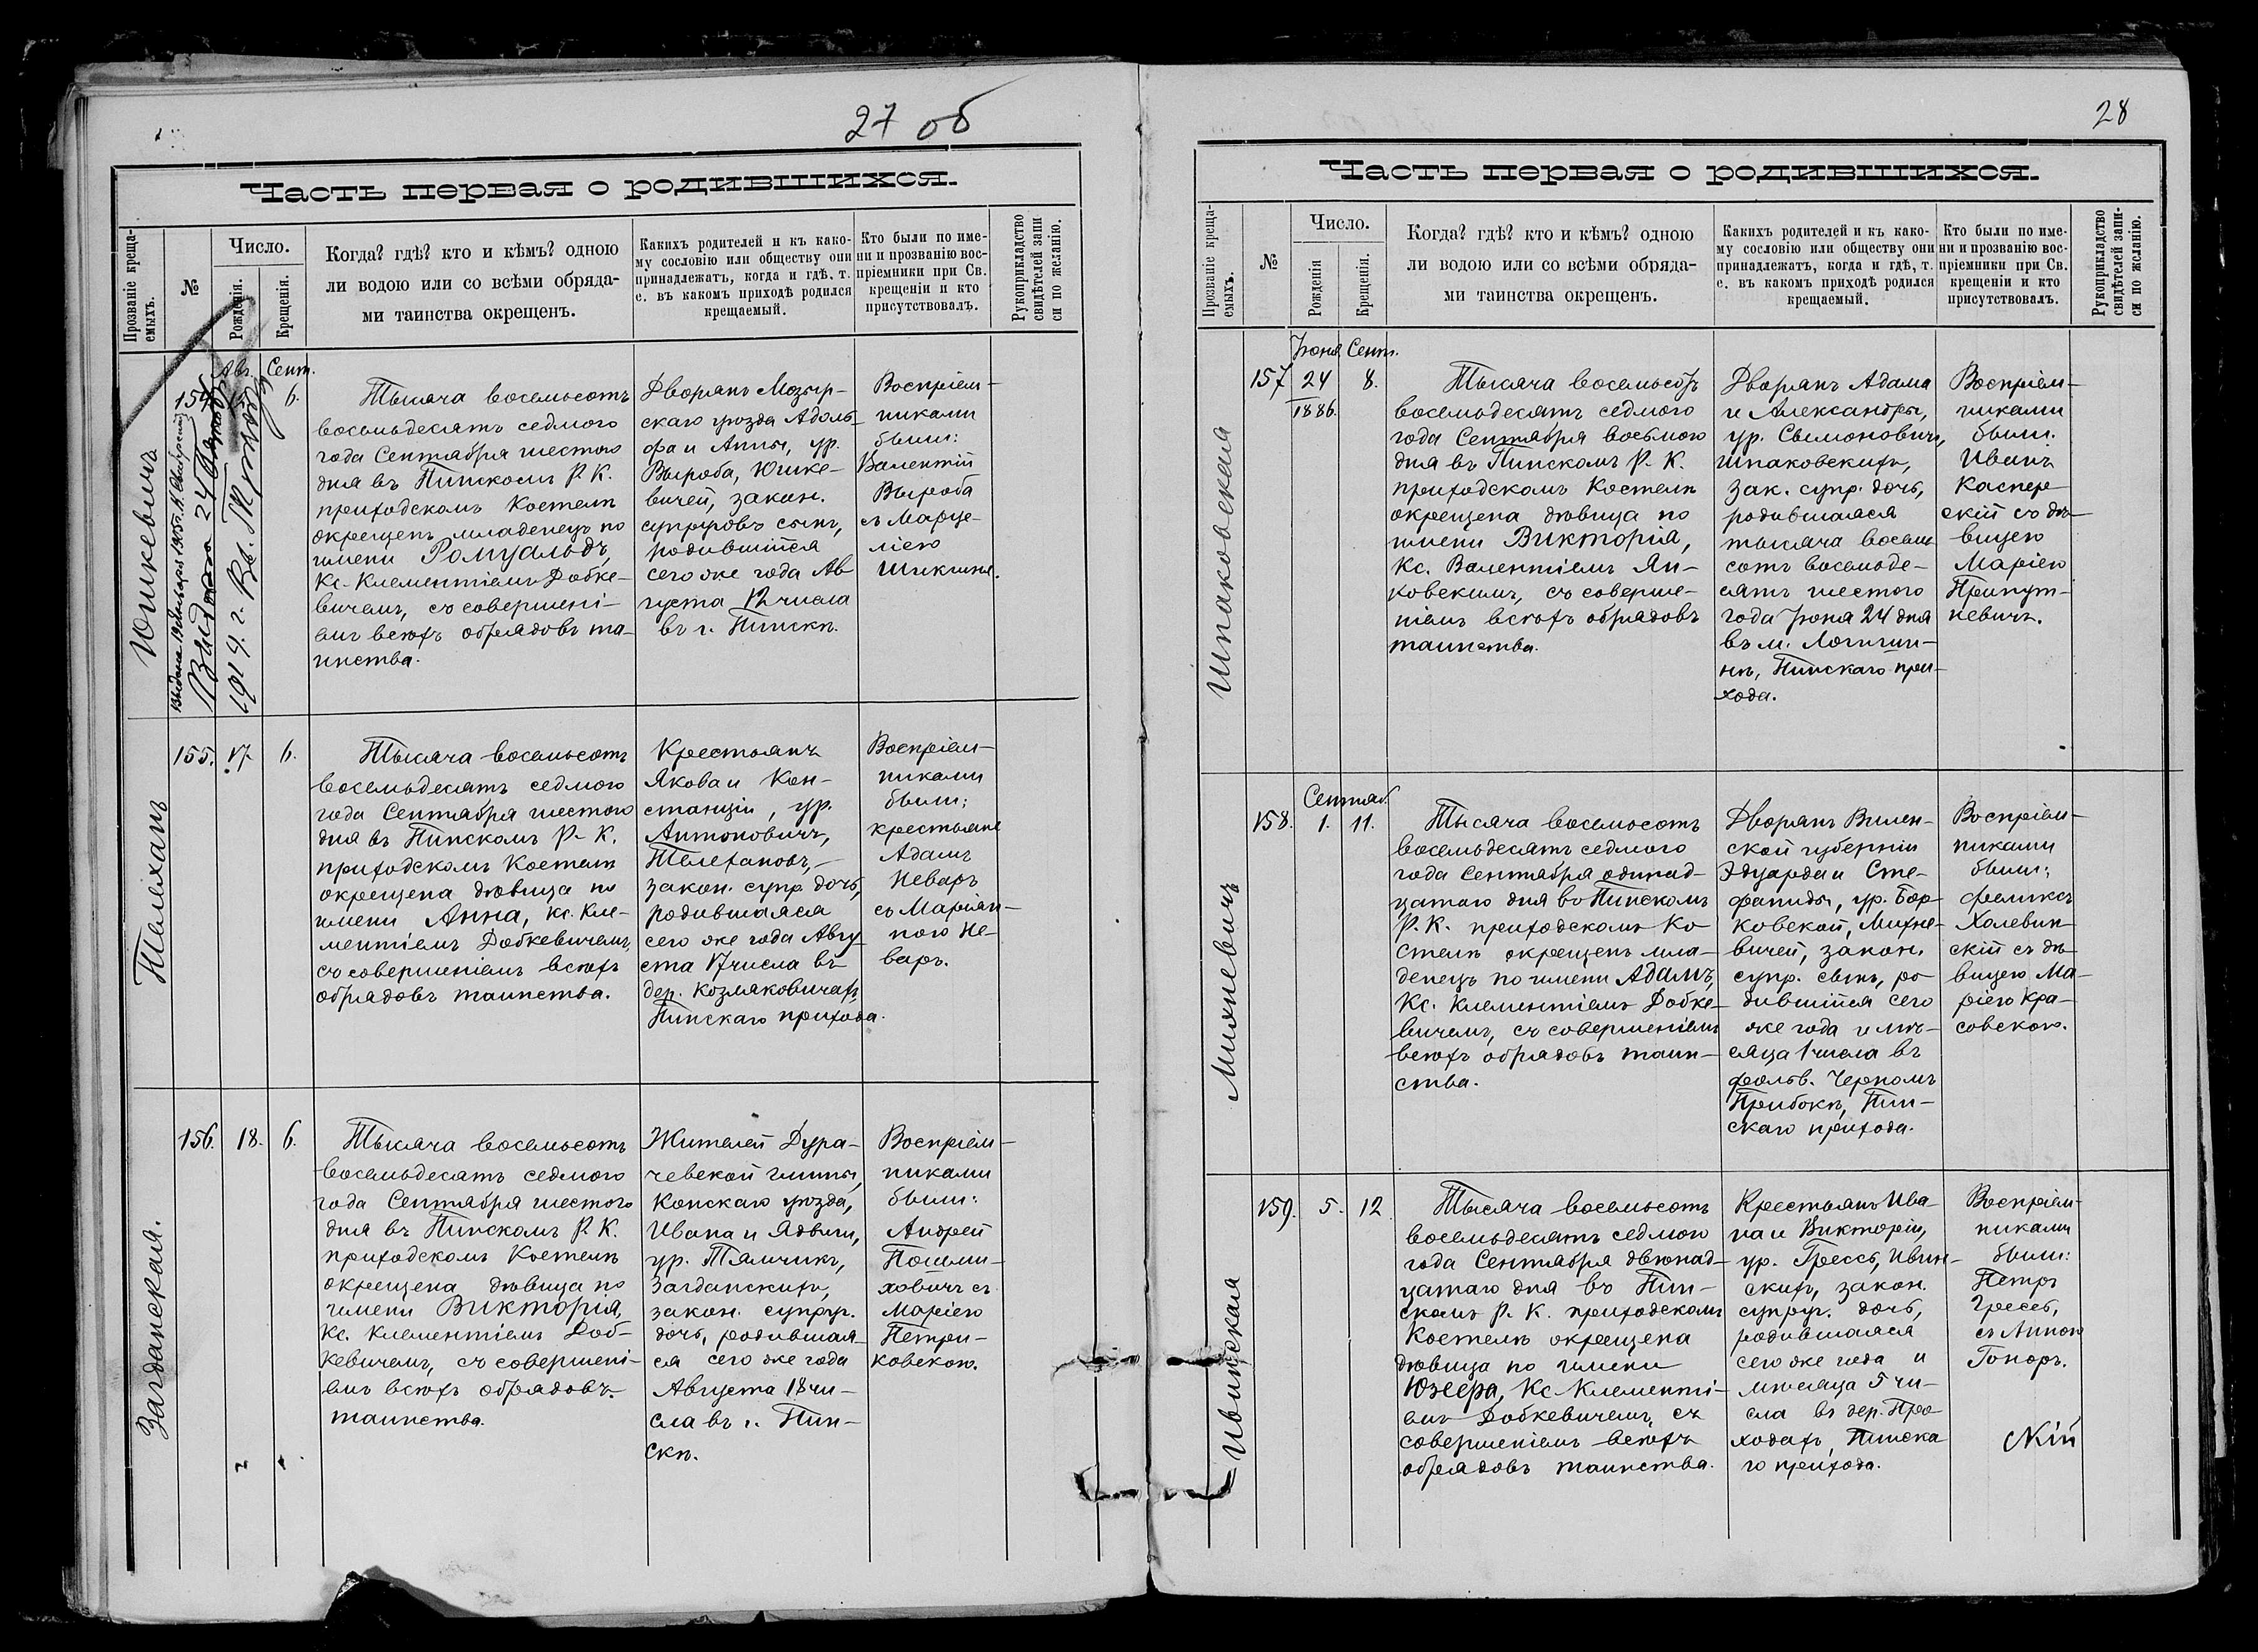 27 об
Часть первая о родившихся.
Прозваніе креща-
емыхъ.
№
Число.
Рожденія.
Крещенія.
Когда? гдѣ? кто и кѣмъ? одною
ли водою или со всѣми обряда-
ми таинства окрещенъ.
Какихъ родителей и къ како-
му сословію или обществу они
принадлежатъ, когда и гдѣ, т.
е. въ какомъ приходѣ родился
крещаемый.
Кто были по име-
ни и прозванію вос-
пріемники при Св.
крещеніи и кто
присутствовалъ.
Рукоприкладство
свидѣтелей запи
си по желанію.
Юшкевичъ
154
Авг. Сент.
6.
1914. г.
Тысяча восемьсотъ
восемьдесятъ седмого
года Сентября шестого
дня въ Пинскомъ Р. К.
приходскомъ Костелѣ
окрещенъ младенецъ по
имени Ромуальдъ,
Кс. Клементіемъ Добке-
вичемъ, съ совершені-
емъ всѣхъ обрядовъ та-
инства.
Дворянъ Мозыр-
скаго уѣзда Адоль-
фа и Анны, ур.
Выроба, Юшке-
вичей, закон.
супруговъ сынъ,
родившійся
сего же года Ав
густа 12 числа
въ г. Пинскѣ.
Воспріем-
никами
были:
Валентій
Выроба
съ Марце-
ліею
Шикшня.
Телехан
155. 17. 6.
Тысяча восемьсотъ
восемьдесятъ седмого
года Сентября шестого
дня въ Пинскомъ Р. К.
приходскомъ Костелѣ
окрещена дѣвица по
имени Анна, кс. Кле-
ментіемъ Добкевичемъ,
съ совершеніемъ всѣхъ
обрядовъ таинства.
Крестьянъ
Якова и Кон-
станціи, ур.
Антоновичъ,
Телехановъ,-
закон. супр. дочь,
родившаяся
сего же года Авгу
ста 17 числа въ
дер. Козляковичахъ,
Пинскаго прихода.
Воспріем-
никами
были;
крестьяне
Адамъ
Неваръ
съ Маріан-
ною Не-
варъ.
Загданская.
156. 18. 6.
Тысяча восемьсотъ
восемьдесятъ седмого
года Сентября шестого
дня въ Пинскомъ Р. К.
приходскомъ Костелѣ
окрещена дѣвица по
имени Викторія,
Кс. Клементіемъ Доб-
кевичемъ, съ совершені-
емъ всѣхъ обрядовъ
таинства.
Жителей Дура-
чевской гмины,
Конскаго уѣзда,
Ивана и Ядвиги,
ур. Тямчикъ,
Загданскихъ,
закон. супруг.
дочь, родившая-
ся сего же года
Августа 18 чи-
сла въ г. Пин-
скѣ.
Воспріем-
никами
были:
Андрей
ховичъ съ
Маріею
Петри-
ковскою.
28
Часть первая о родившихся.
Прозваніе креща-
емыхъ.
№
Число.
Рожденія
Крещенія.
Когда? гдѣ? кто и кѣмъ? одною
ли водою или со всѣми обряда-
ми таинства окрещенъ.
Какихъ родителей и къ како-
му сословію или обществу они
принадлежатъ, когда и гдѣ, т.
е. въ какомъ приходѣ родился
крещаемый.
Кто были по име-
ни и прозванію вос-
пріемники при Св.
крещеніи и кто
присутствовалъ.
Рукоприкладство
свидѣтелей запи-
си по желанію.
Шпаковская
Іюня Сент.
157 24 8.
1886.
Тысяча восемьсотъ
восемьдесятъ седмого
года Сентября восьмого
дня въ Пинскомъ Р. К.
приходскомъ Костелѣ
окрещена дѣвица по
имени Викторія,
Кс. Валентіемъ Ян-
ковскимъ, съ соверше-
ніемъ всѣхъ обрядовъ
таинства.
Дворянъ Адама
и Александры,
ур. Свмоновичъ,
Шпаковскихъ,
зак. супр. дочь,
родившаяся
тысяча восемь
сотъ восемьде-
сятъ шестого
года Іюня 24 дня
въ м. Логиши-
нѣ, Пинскаго при-
хода.
Воспріем-
никами
были.
Иванъ
Каспер
скій съ дѣ-
вицею
Маріею
Припут-
невичъ.
Михневичъ
Сентяб.
158. 1. 11.
Тысяча восемьсотъ
восемьдесятъ седмого
года Сентября одинад-
цатаго дня въ Пинскомъ
Р. К. приходскомъ Ко
стелѣ окрещенъ мла-
денецъ по имени Адамъ,
Кс. Клементіемъ Добке-
вичемъ, съ совершеніемъ
всѣхъ обрядовъ таин-
ства.
Дворянъ Вилен-
ской губерніи
Эдуарда и Сте-
фаниды, ур. Бор-
ковской, Михне-
вичей, закон.
супр. сынъ, ро-
дившійся сего
же года и мѣ-
сяца 1 числа въ
фольв. Черномъ
Прибокѣ, Пин-
скаго прихода.
Воспріем-
никами
были;
Феликсъ
Холевин-
скій съ дѣ-
вицею Ма-
ріею Кра-
совскою.
Ивинская
159. 5. 12
Тысяча восемьсотъ
восемьдесятъ седмого
года Сентября двѣнад-
цатаго дня въ Пин-
скомъ Р. К. приходскомъ
Костелѣ окрещена
дѣвица по имени
Юзефа, Кс. Клементі-
емъ Добкевичемъ, съ
совершеніемъ всѣхъ
обрядовъ таинства.
Крестьянъ Ива-
на и Викторіи,
ур. Грессъ, Ивин-
скихъ, закон.
супруг. дочь,
родившаяся
сего же года и
мѣсяца 5 чи-
сла въ дер. Про
ходахъ, Пинска
го прихода.
Воспріем-
никами
были:
Петръ
Грессъ,
съ Анною
Гоноръ.